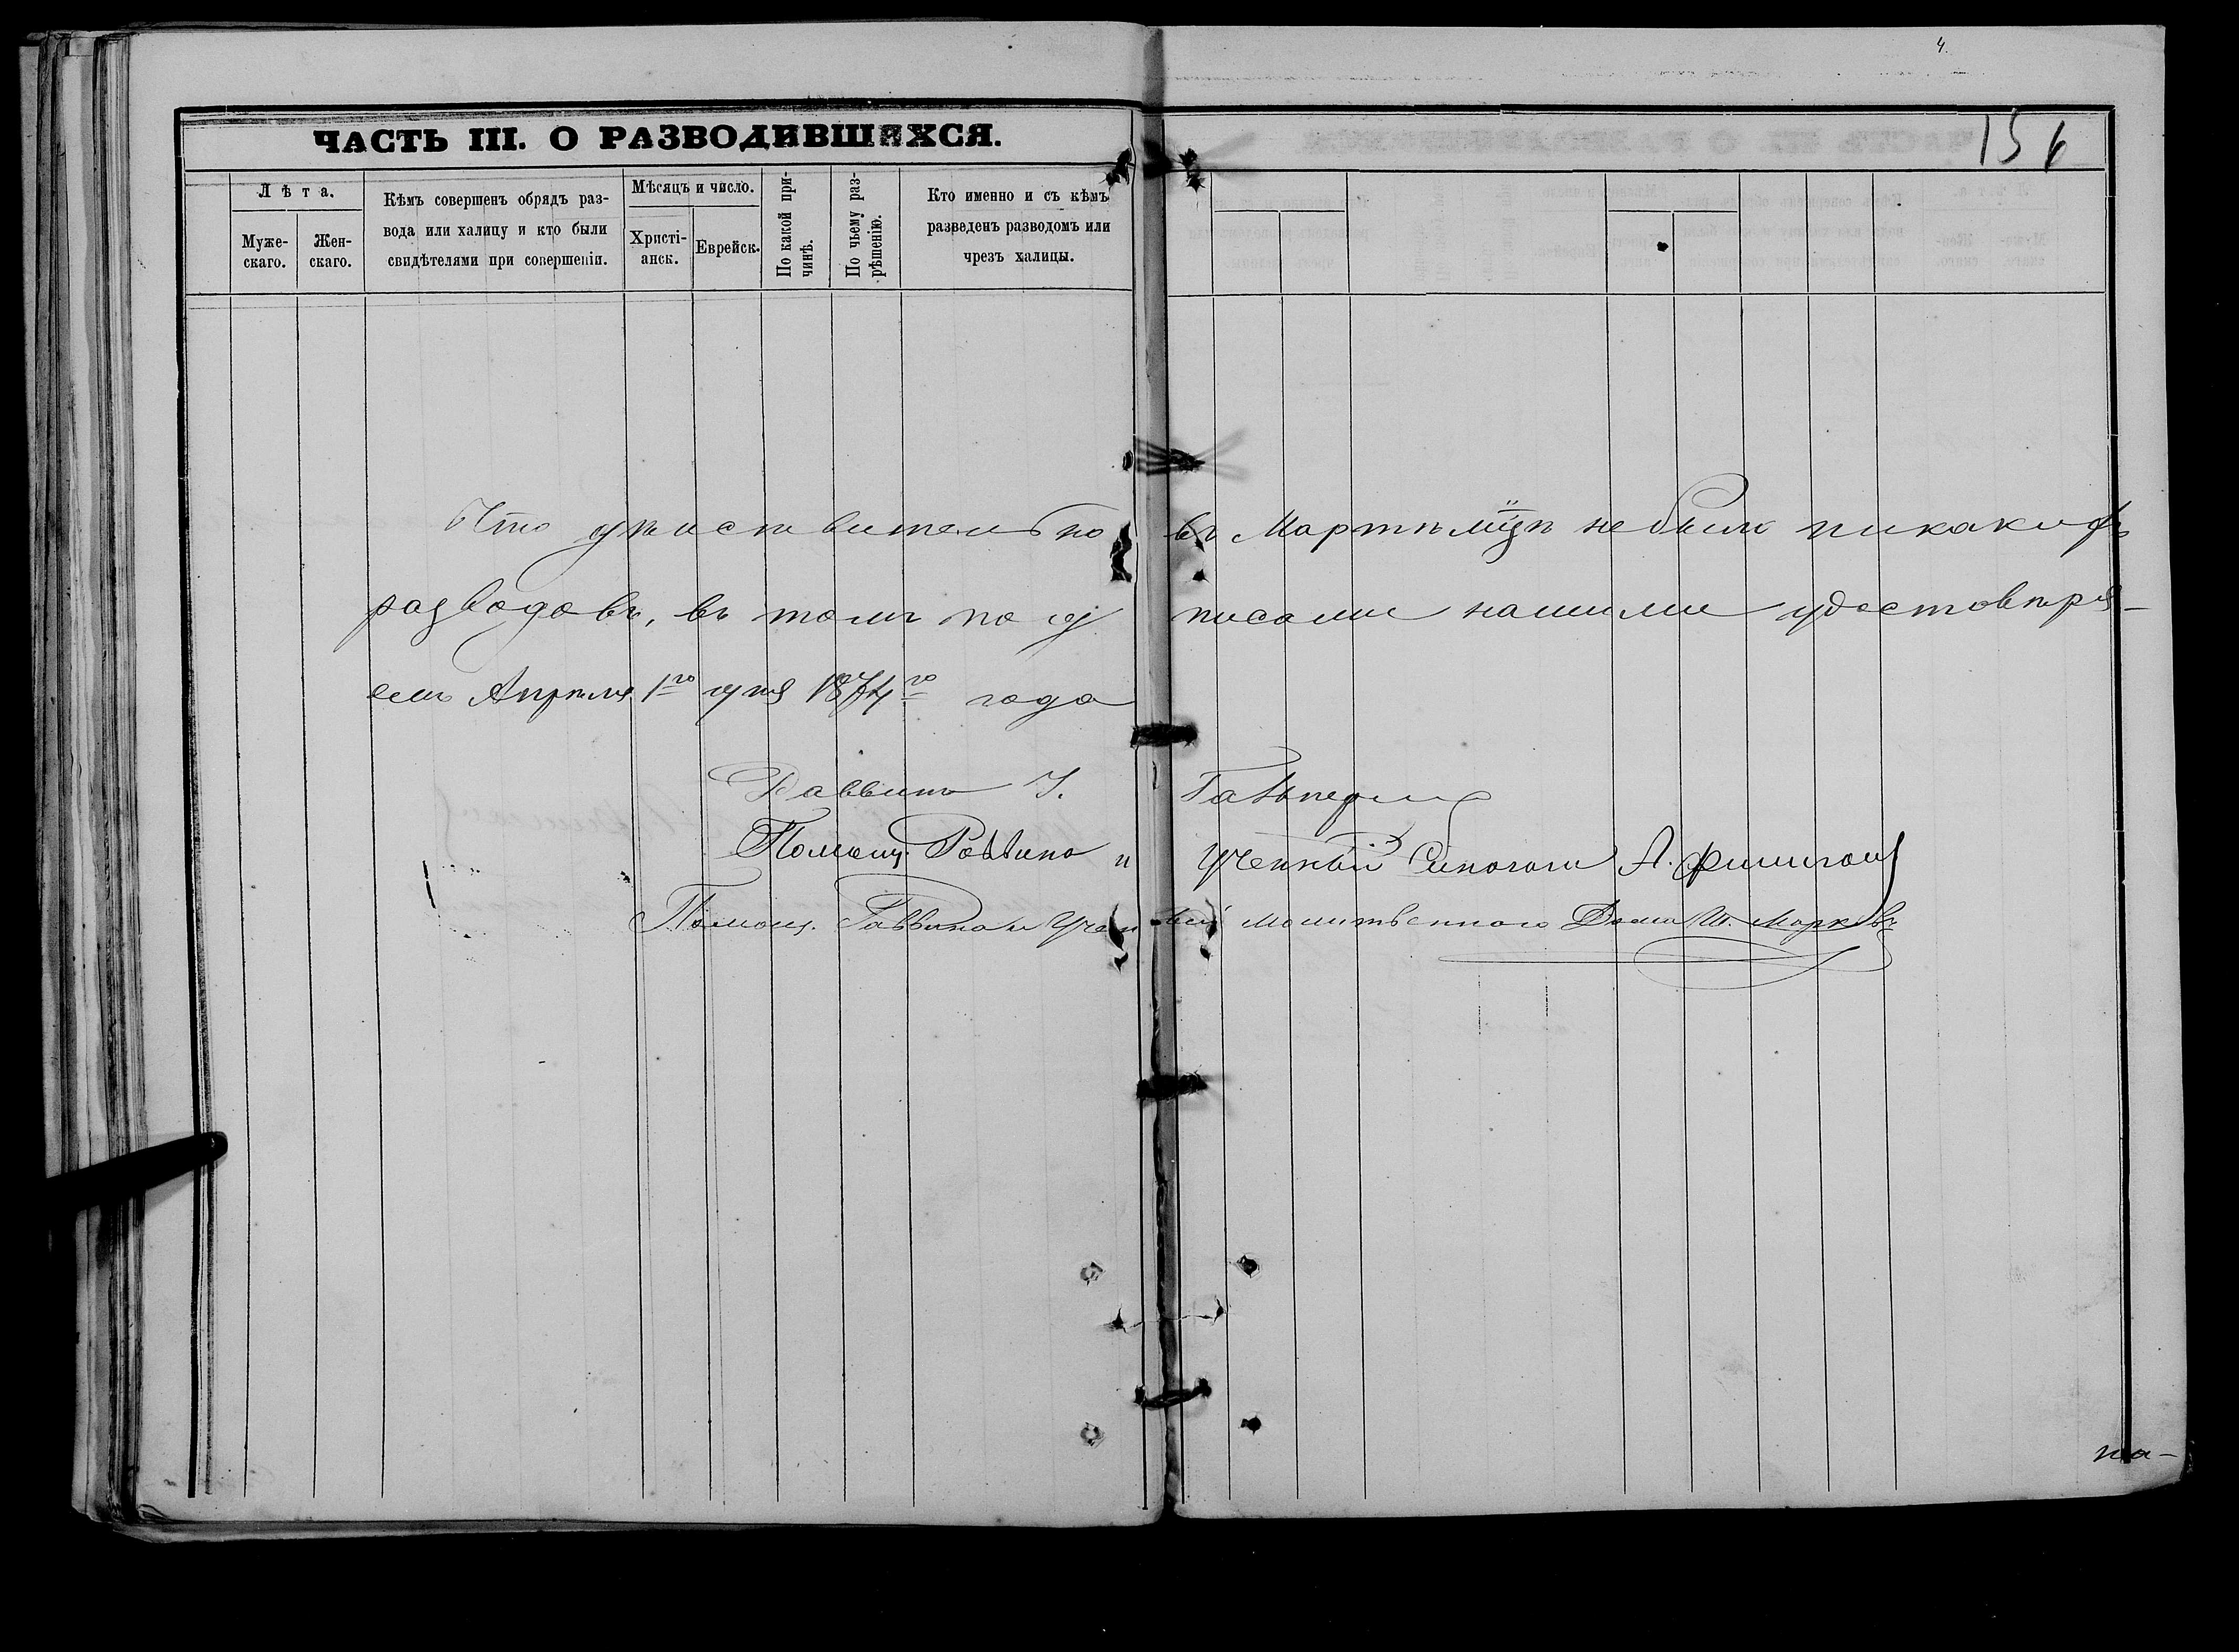 4.
ЧАСТЬ III. О РАЗВОДИВШИХСЯ.
156
Лѣта.
Муже-
скаго.
Жен-
скаго.
Кѣмъ совершенъ обрядъ раз-
вода или халицу и кто были
свидѣтелями при совершеніи.
Мѣсяцъ и число.
Христі-
анск.
Еврейск.
По какой при-
чинѣ.
По чьему раз-
рѣшенію.
Кто именно и съ кѣмъ
разведенъ разводомъ или
чрезъ халицы.
Что дѣйствительно въ Мартѣ мцѣ не было никакихъ
разводовъ, въ томъ подписами нашими удостовѣря-
емъ Апрѣля 1го дня 1874го года
Раввинъ І. Гальперин
Помощ. Раввина и Ученный Синогоги А.
Помощ. Раввина и Ученый молитвенного Дома Ш. Марковъ